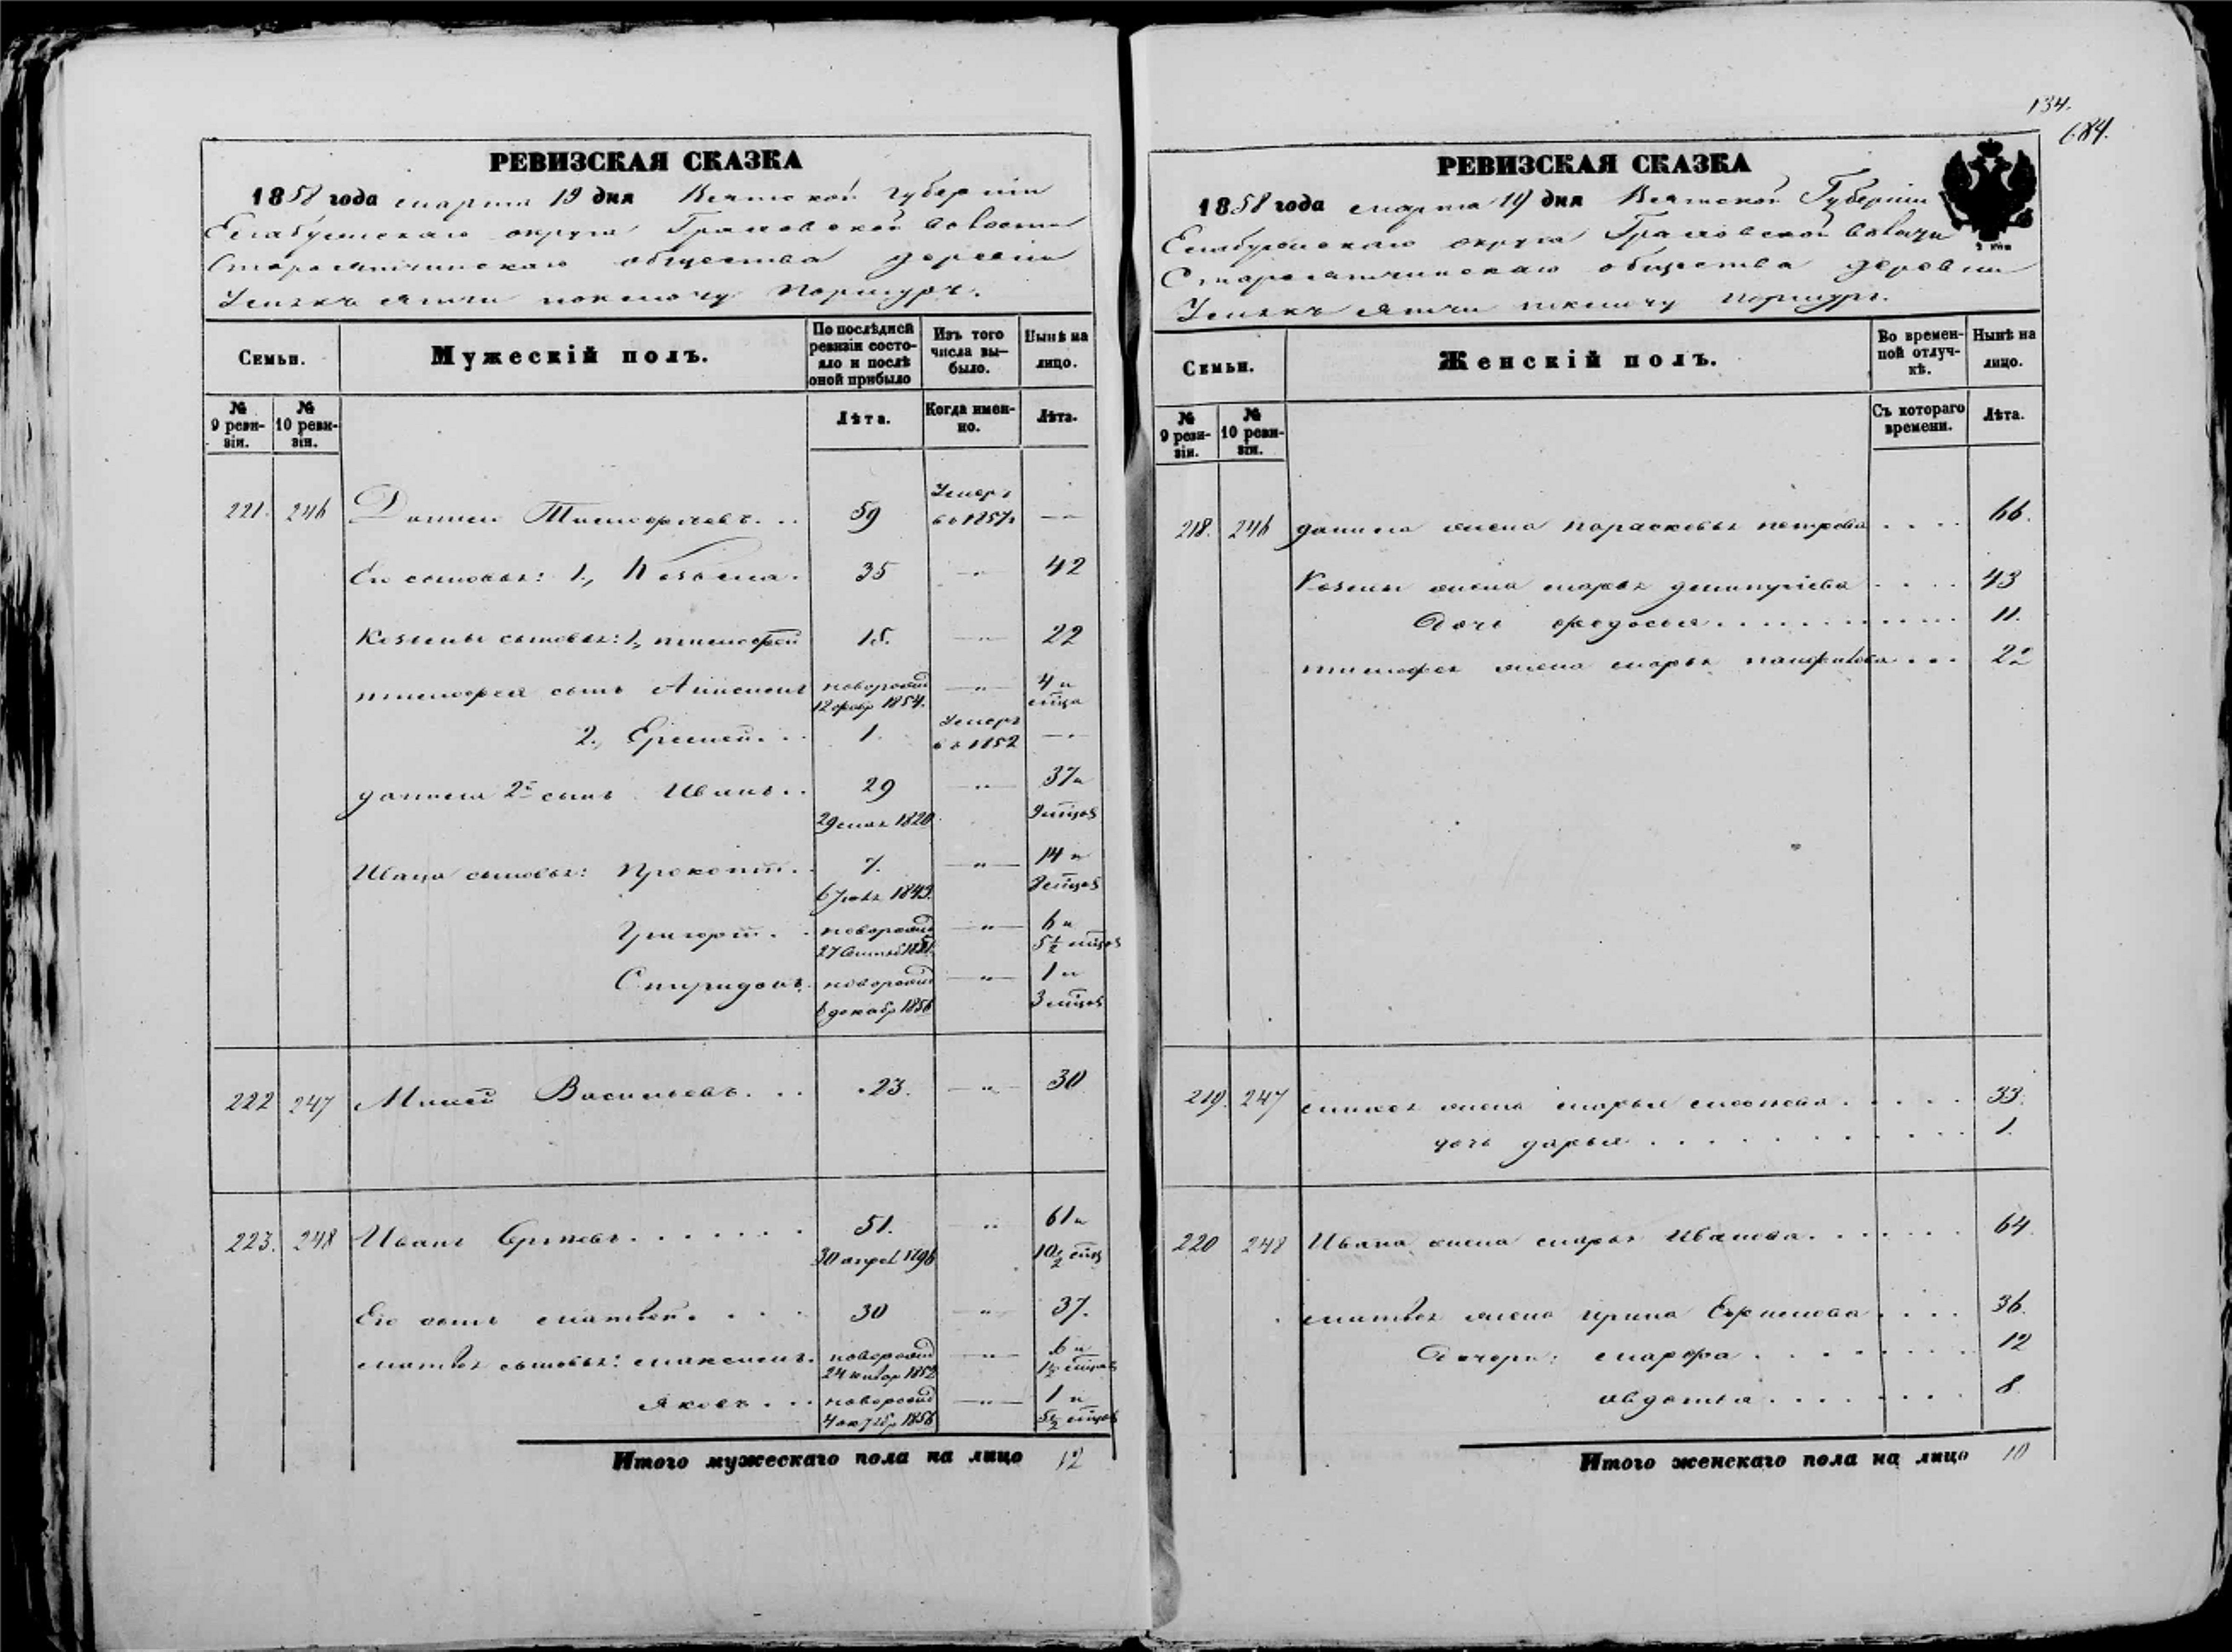 134.
684.
РЕВИЗСКАЯ СКАЗКА
1858 года марта 19 дня Вятской Губерніи
Елабужскаго округа Граховской волости
общества деревни
починку
Семьи.
Мужескій полъ.
По послѣдней ревизіи состояло и послѣ оной прибыло
Изъ того числа выбыло.
Нынѣ на лицо.
№ 9 ревизіи.
№ 10 ревизіи.
Лѣта.
Когда именно.
Лѣта.
221. 246 Данило Тимофѣевъ. . . 59 Умеръ въ 1857
Его сыновья: 1., Козьма. 35 — 42
Козьмы сыновья: 1, тимофей 15. — 22
тимофея сынъ новорожд 12 февр 1854. — 4 и мѣсца
2., Еремей. . . 1. Умеръ въ 1852
данила 2й сынъ Иванъ. . 29 — 37 и
29 1820 9 мѣсцов
Ивана сыновья: Прокопій. . 7. — 14 и
1843. 8 мѣсцов
Григорій. . новорожд — 6 и
27 Сентяб 1851. 5½ мѣсцов
Спиридонъ. новорожд — 1 и
6 декабр 1856 3 мѣсцов
222 247 Михей Васильевъ. . . 23. — 30
223. 248 Иванъ . . . . . . . 51. 61 и
30 апрел 1796 10½ мѣсц
Его сынъ матвей. . . . 30 — 37.
матвея сыновья: максимъ. новорожд — 6 и
24 1852 1½ мѣсцов
яковъ . . . новорожд — 1 и
4 октябр 1856 5½ мѣсцов
Итого мужескаго пола на лицо 12
РЕВИЗСКАЯ СКАЗКА
1858 года марта 19 дня Вятской Губерніи
Елабужскаго округа Граховской волости
общества деревни
починку
Семьи.
Женскій полъ.
Во временной отлучкѣ.
Нынѣ на лицо.
№ 9 ревизіи.
№ 10 ревизіи.
Съ котораго времени.
Лѣта.
218. 246 данила жена парасковья петрова . . . . 66.
Козьмы жена марья . . . . 43
Дочь федосья . . . . . . . . . . . . 11.
тимофея жена марья . . . 22
219. 247 михея жена марья . . . . . 33.
дочь дарья . . . . . . . . . . . . 1.
220 248 Ивана жена марья Иванова. . . . . . . 64.
матвея жена ирина Ефимова . . . . 36.
Дочери: марфа . . . . . . . . . 12
авдотья . . . . . . . . 8.
Итого женскаго пола на лицо 10